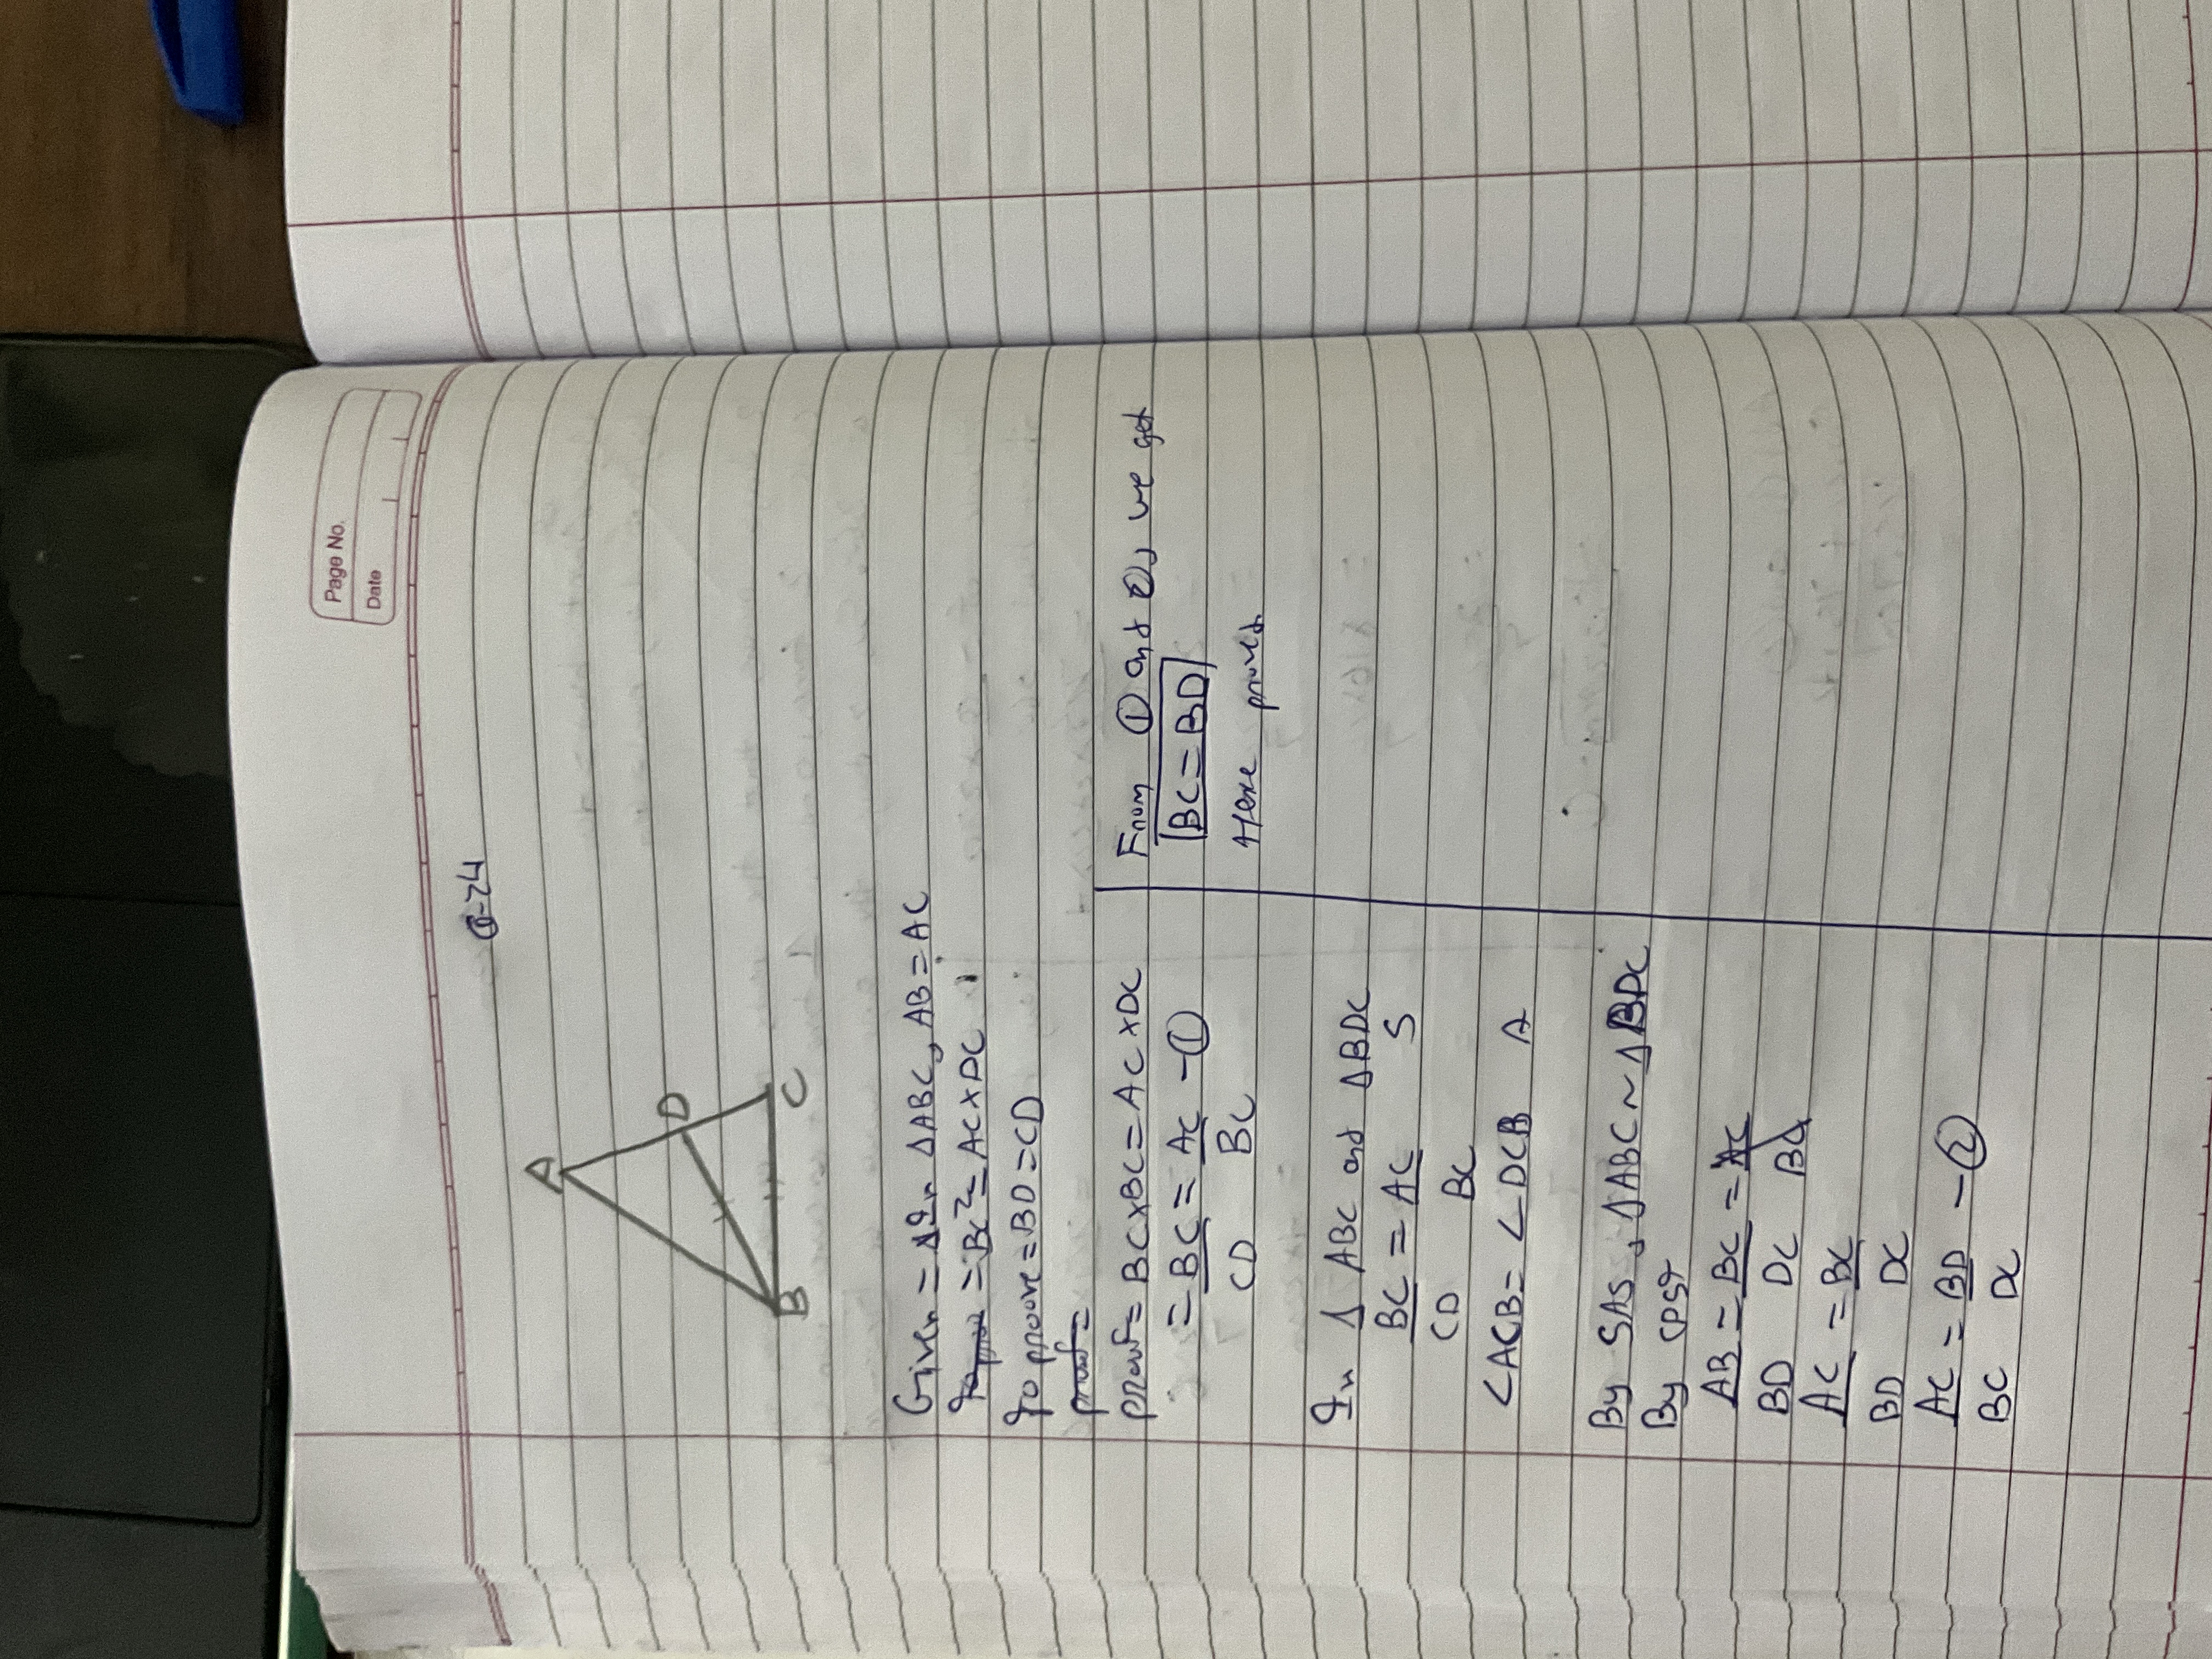 Page No.
Date
Q-24
A
D
B
C
Given = In ΔABC, AB = AC
= BC² = AC × DC
To proove = BD = CD
proof = BC × BC = AC × DC
= BC = AC - ①
CD BC
In Δ ABC and ΔBDC
BC = AC S
CD BC
∠ACB = ∠DCB A
By SAS, ΔABC ~ ΔBDC
By CPST
AB = BC = AC
BD DC BC
AC = BC
BD DC
AC = BD - ②
BC DC
From ① and ②, we get
BC = BD
Hence proved